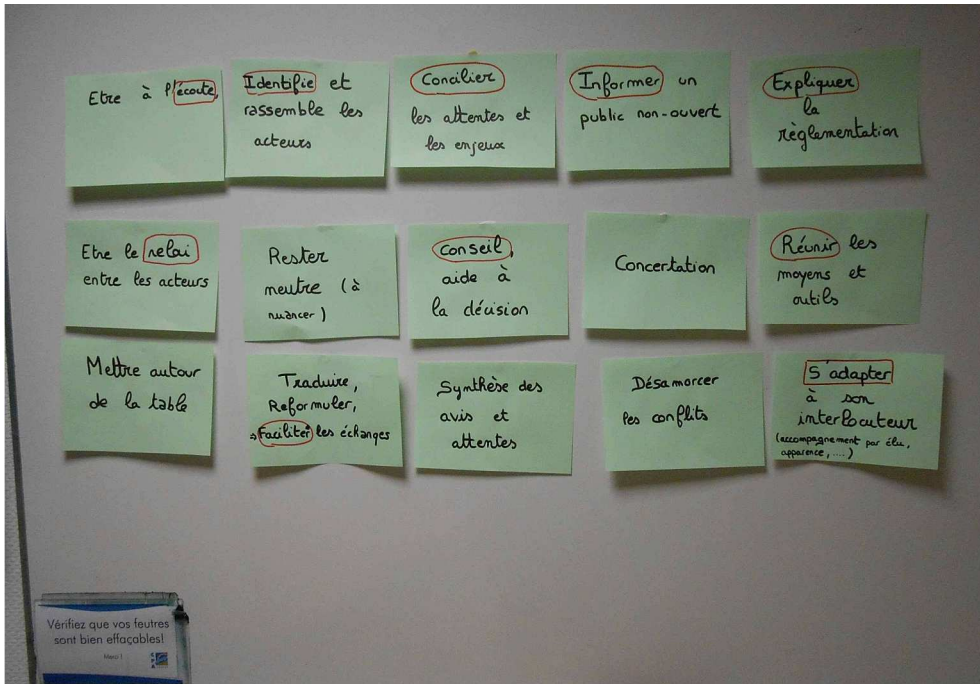 Etre à l'écoute,
Identifie et
rassemble les
acteurs
Concilier
les attentes et
les enjeux
Informer un
public non-ouvert
Expliquer
la
règlementation
Etre le relai
entre les acteurs
Rester
neutre (à
nuancer)
conseil,
aide à
la décision
Concertation
Réunir les
moyens et
outils
Mettre autour
de la table
Traduire,
Reformuler,
→ Faciliter les échanges
Synthèse des
avis et
attentes
Désamorcer
les conflits
S'adapter
à son
interlocuteur
(accompagnement par élu,
apparence, ....)
Vérifiez que vos feutres
sont bien effaçables!
Merci !